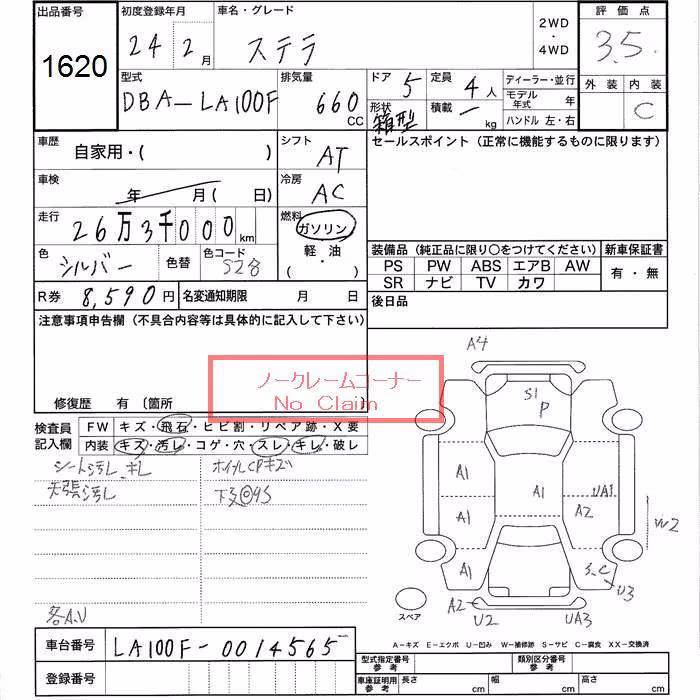 出品番号
1620
初度登録年月
24 2月
車名・グレード
ステラ
2WD
・
4WD
評価点
3.5
外装 内装
C
型式
DBA-LA100F
排気量
660
CC
ドア 5
定員 4人
形状
箱型
積載 -
kg
ディーラー・並行
モデル
年式 年
ハンドル 左・右
車歴
自家用・( )
シフト
AT
セールスポイント (正常に機能するものに限ります)
車検
年 月( 日)
冷房
AC
走行
26万3千000km
燃料
ガソリン
軽・油
( ・ )
色
シルバー
色替
色コード
S28
装備品 (純正品に限り○をつけてください)
新車保証書
PS PW ABS エアB AW
SR ナビ TV カワ
有・無
R券 8,590円
名変通知期限 月 日
後日品
注意事項申告欄 (不具合内容等は具体的に記入して下さい)
ノークレームコーナー
No Claim
修復歴 有 〔箇所 〕
検査員
記入欄
FW キズ・飛石・ヒビ割・リペア跡・X要
内装 キズ・汚レ・コゲ・穴・スレ・キレ・破レ
シート汚レ、キレ
ホイルCPキズ
天張汚レ
下回◎9S
各A.U
A4
S1
P
A1
A1
UA1
A1
A2
W2
A1
S.C
U3
A2
U2
UA3
スペア
A-キズ E-エクボ U-凹み W-補修跡 S-サビ C-腐食 XX-交換済
車台番号
LA100F-0014565
登録番号
型式指定番号
参考
類別区分番号
参考
車庫証明用
参考
長さ cm
幅 cm
高さ cm